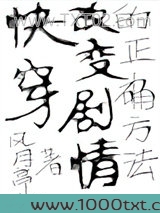 www.TXT02.com
快穿
改变剧情
的正确方法
风月亭著
www.1000txt.c